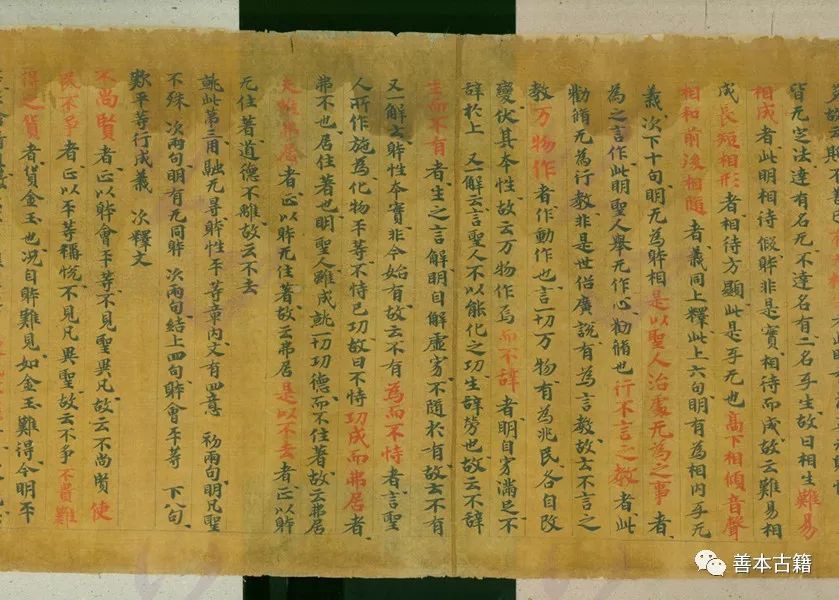 皆无定法達有名无不達名有二名乎生故曰相生難易
相成者此明相待假躰非是實相待而成故云難易相
成長短相形者相待方顯此是乎无也高下相傾音聲
相和前後相隨者義同上釋此上六句明有為相内乎无
義次下十句明无為躰相是以聖人治處无為之事者
為之言作此明聖人舉无作心勸脩也行不言之教者此
勸脩无為行教非是世俗廣說有為言教故云不言之
教万物作者作動作也言一切万物有為兆民各自改
變伏其本性故云万物作焉而不辭者明自窮滿足不
辭於上又一解云言聖人不以能化之功生辭勞也故云不辭
生而不有者生之言解明自解虛窮不隨於有故云不有
又一解云躰性本實非今始有故云不有為而不恃者言聖
人所作施為化物平等不恃已功故曰不恃功成而弗居者
弗不也居住著也明聖人雖成就一切功德而不住著故云弗居
夫唯弗居者正以躰无住著故云弗居是以不去者正以躰
无住著道德不離故云不去
就此第三用融无㝵躰性平等章内文有四意初兩句明凡聖
不殊次兩句明有无同躰次兩句結上四句躰會平等下八句
歎平等行成義次釋文
不尚賢者正以躰會平等不見聖異凡故云不尚賢使
民不爭者正以平等稱悦不見凡異聖故云不爭不貴難
得之貨者貨金玉也况自躰難見如金玉難得今明平
善本古籍